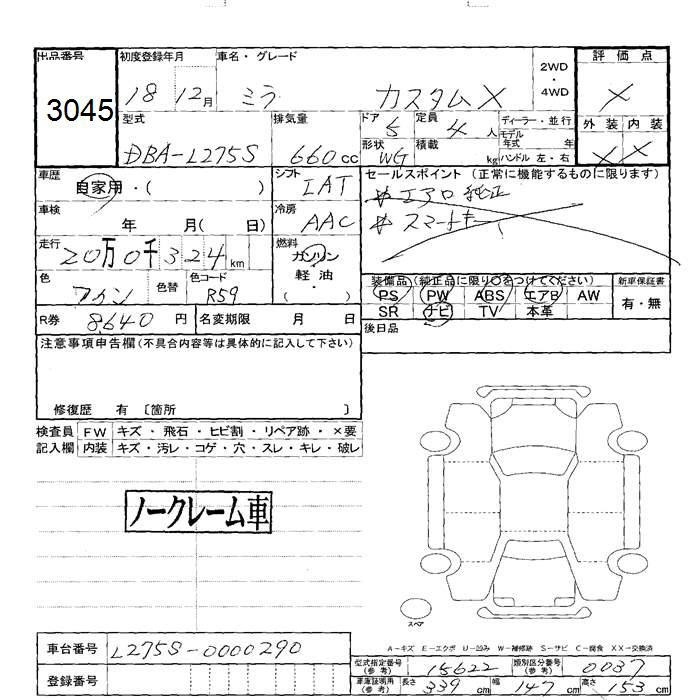 出品番号 初度登録年月 車名・グレード 2WD・4WD 評価点
3045 18 12月 ミラ カスタムX X
型式 排気量 ドア 5 定員 4人 ディーラー・並行 外装 内装
モデル年式 年
DBA-L275S 660cc 形状 WG 積載 kg ハンドル 左・右 X X
車歴 自家用・( ) シフト IAT セールスポイント (正常に機能するものに限ります)
エアロ 純正
車検 年 月( 日) 冷房 AAC スマートキー
走行 20万0千324km 燃料 ガソリン 軽油・( )
色 色替 色コード R59
装備品(純正品に限り○をつけてください) 新車保証書
PS PW ABS エアB AW 有・無
SR ナビ TV 本革
R券 8640円 名変期限 月 日 後日品
注意事項申告欄(不具合内容等は具体的に記入して下さい)
修復歴 有 〔箇所 〕
検査員 FW キズ・飛石・ヒビ割・リペア跡・×要
記入欄 内装 キズ・汚レ・コゲ・穴・スレ・キレ・破レ
ノークレーム車
スペア
A-キズ E-エクボ U-凹み W-補修跡 S-サビ C-腐食 XX-交換済
車台番号 L275S-0000290
型式指定番号(参考) 15622 類別区分番号(参考) 0037
登録番号
車庫証明用(参考) 長さ 339cm 幅 147cm 高さ 153cm